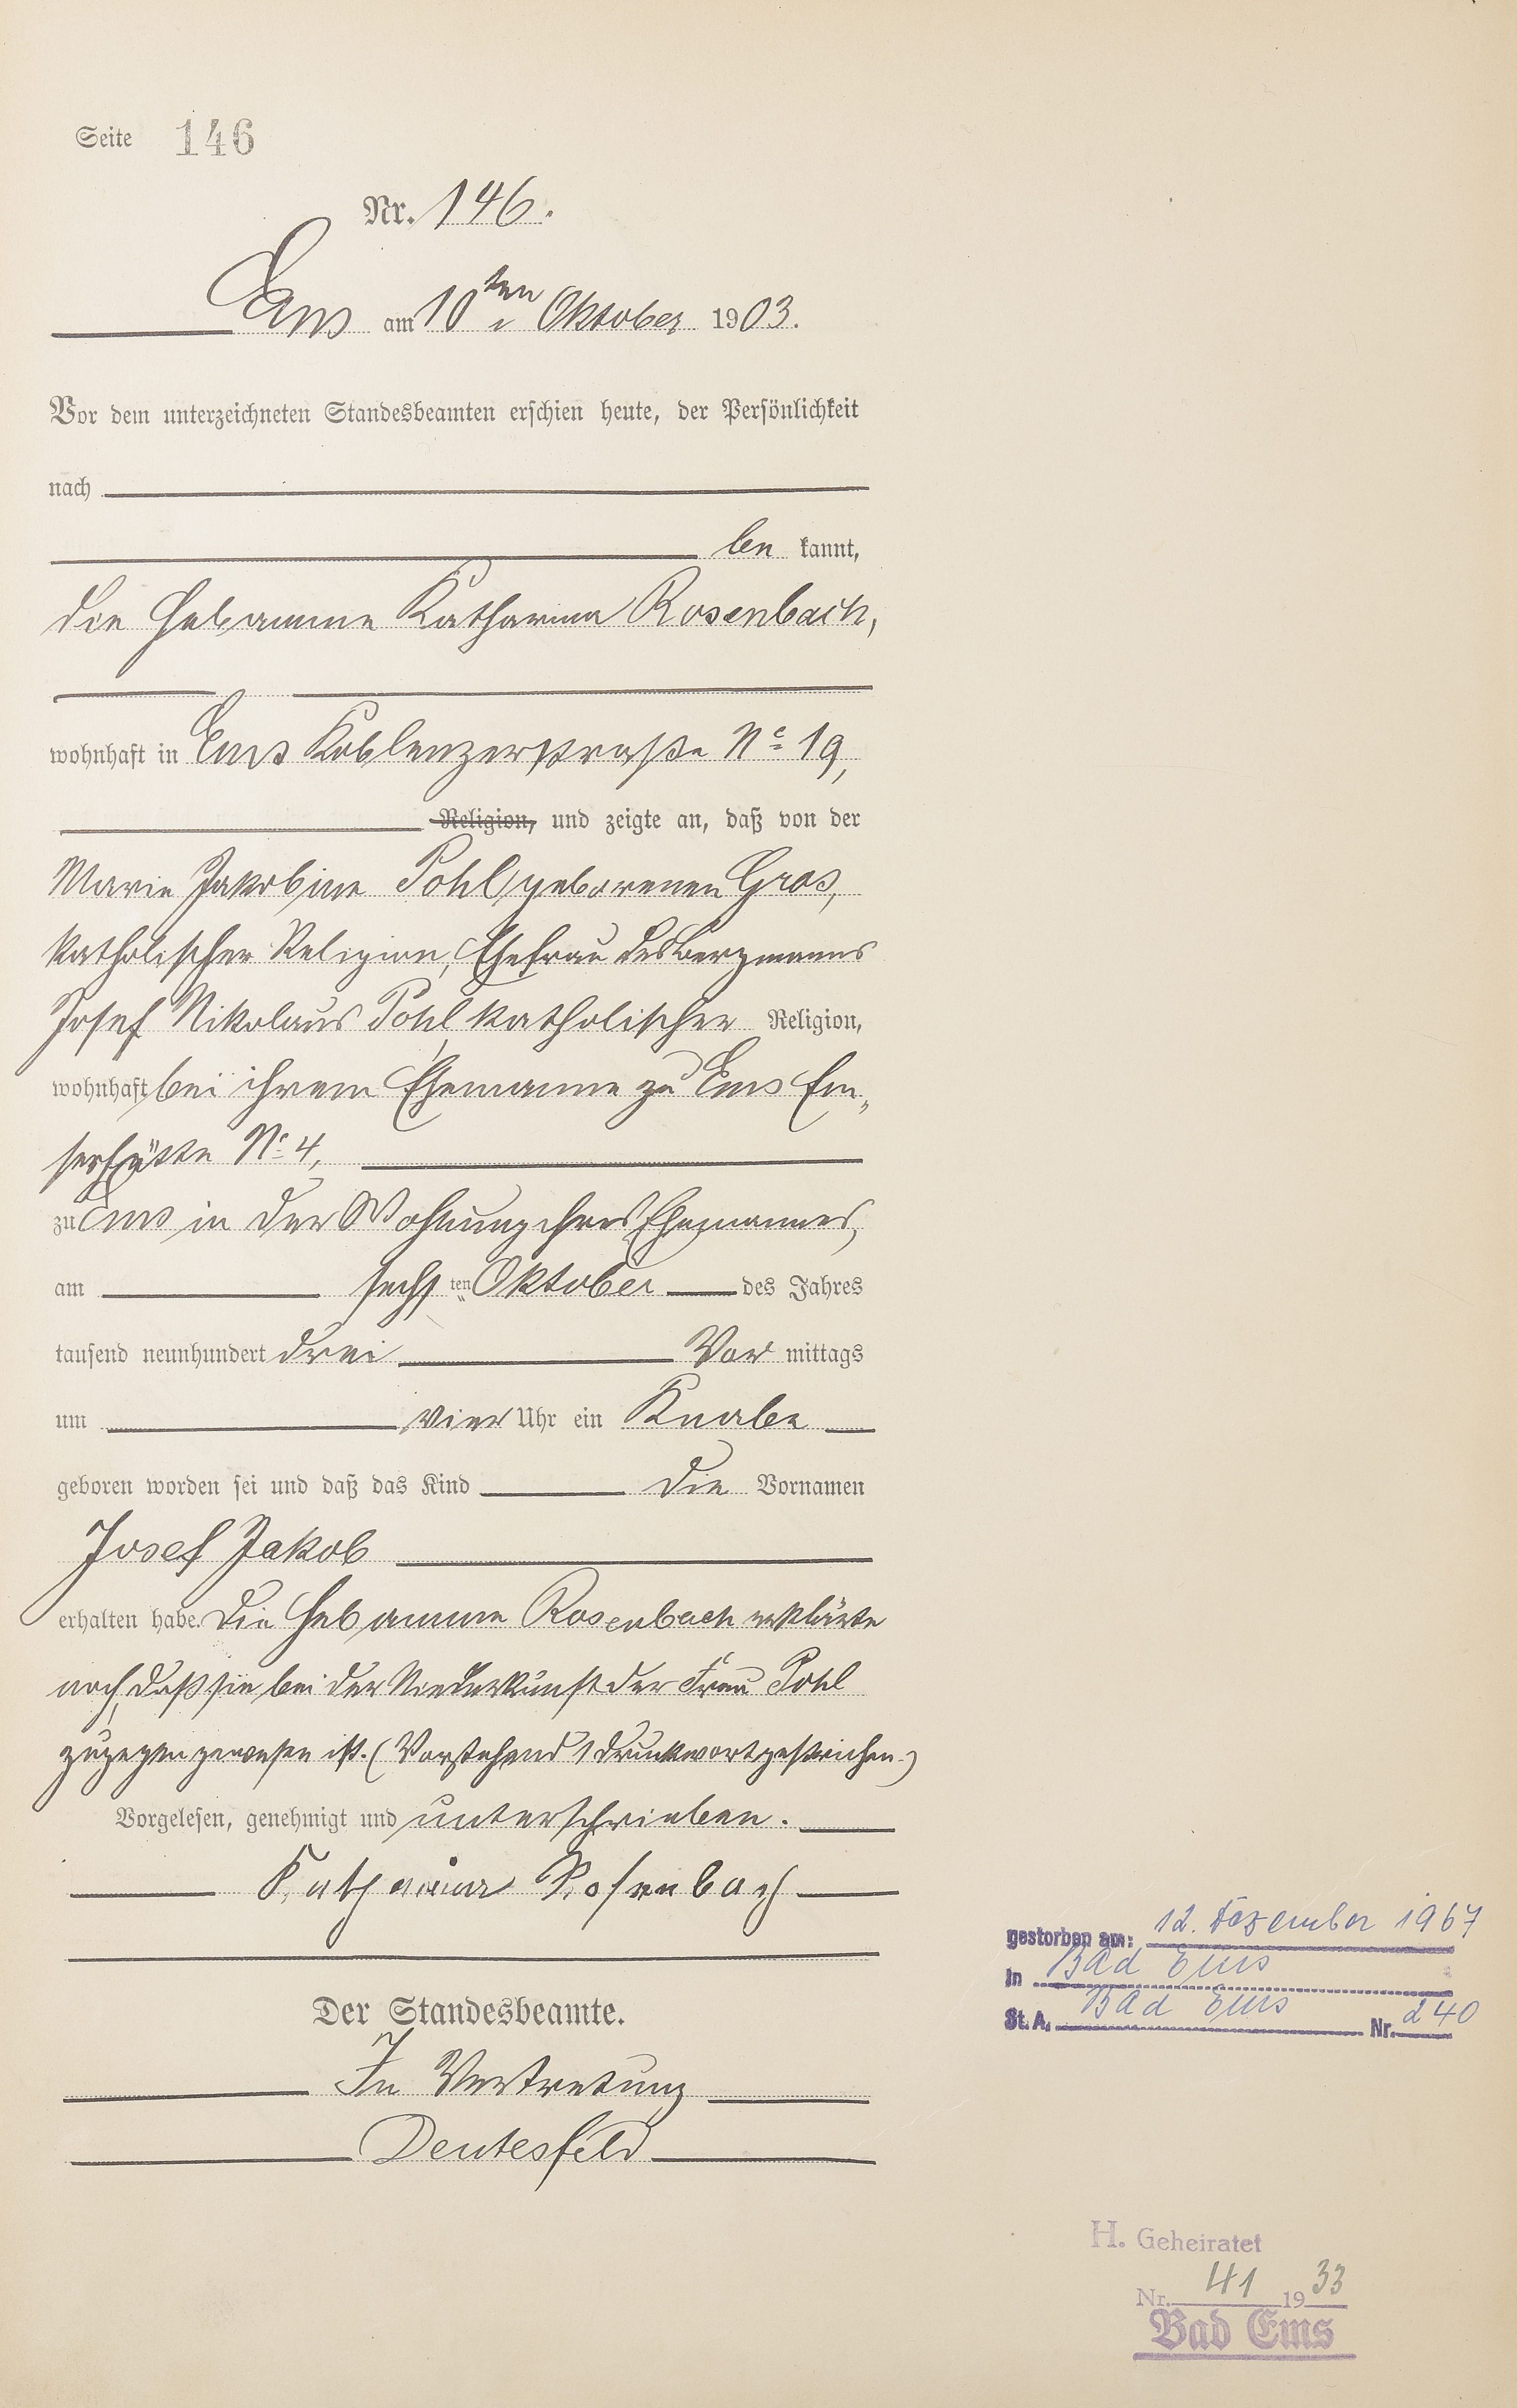 Seite 146
Nr. 146.
Ems am 10ten Oktober 1903.
Vor dem unterzeichneten Standesbeamten erschien heute, der Persönlichkeit
nach
be kannt,
die Hebamme Katharina Rosenbach,
wohnhaft in Ems Koblenzerstraße No 19,
Religion, und zeigte an, daß von der
Marie Jakobine Pohl geborenen Gras,
katholischer Religion, Ehefrau des Bergmanns
Josef Nikolaus Pohl, katholischer Religion,
wohnhaft bei ihrem Ehemanne zu Ems Em„
serhütte No 4,
zu Ems in der Wohnung ihres Ehemannes,
am sechsten Oktober des Jahres
tausend neunhundert drei Vor mittags
um vier Uhr ein Knabe
geboren worden sei und daß das Kind die Vornamen
Josef Jakob
erhalten habe. Die Hebamme Rosenbach erklärte
noch, daß sie bei der Niederkunft der Frau Pohl
zugegen gewesen ist. (Vorstehend 1 Druckwort gestrichen.)
Vorgelesen, genehmigt und unterschrieben.
Katharina Rosenbach
Der Standesbeamte.
In Vertretung
Deutesfeld
gestorben am: 12. Dezember 1967
in Bad Ems
St. A. Bad Ems Nr. 240
H. Geheiratet
Nr. 41 1933
Bad Ems